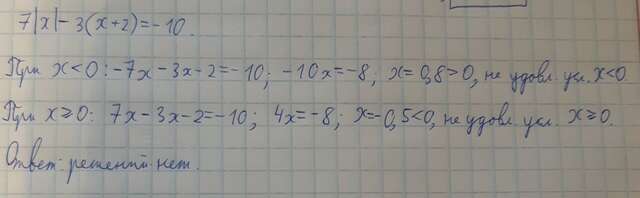 7|x|-3(x+2)=-10.
При x<0: -7x-3x-2=-10; -10x=-8; x=0,8>0, не удовл. усл. x<0
При x≥0: 7x-3x-2=-10; 4x=-8; x=-0,5<0, не удовл. усл. x≥0.
Ответ: решений нет.